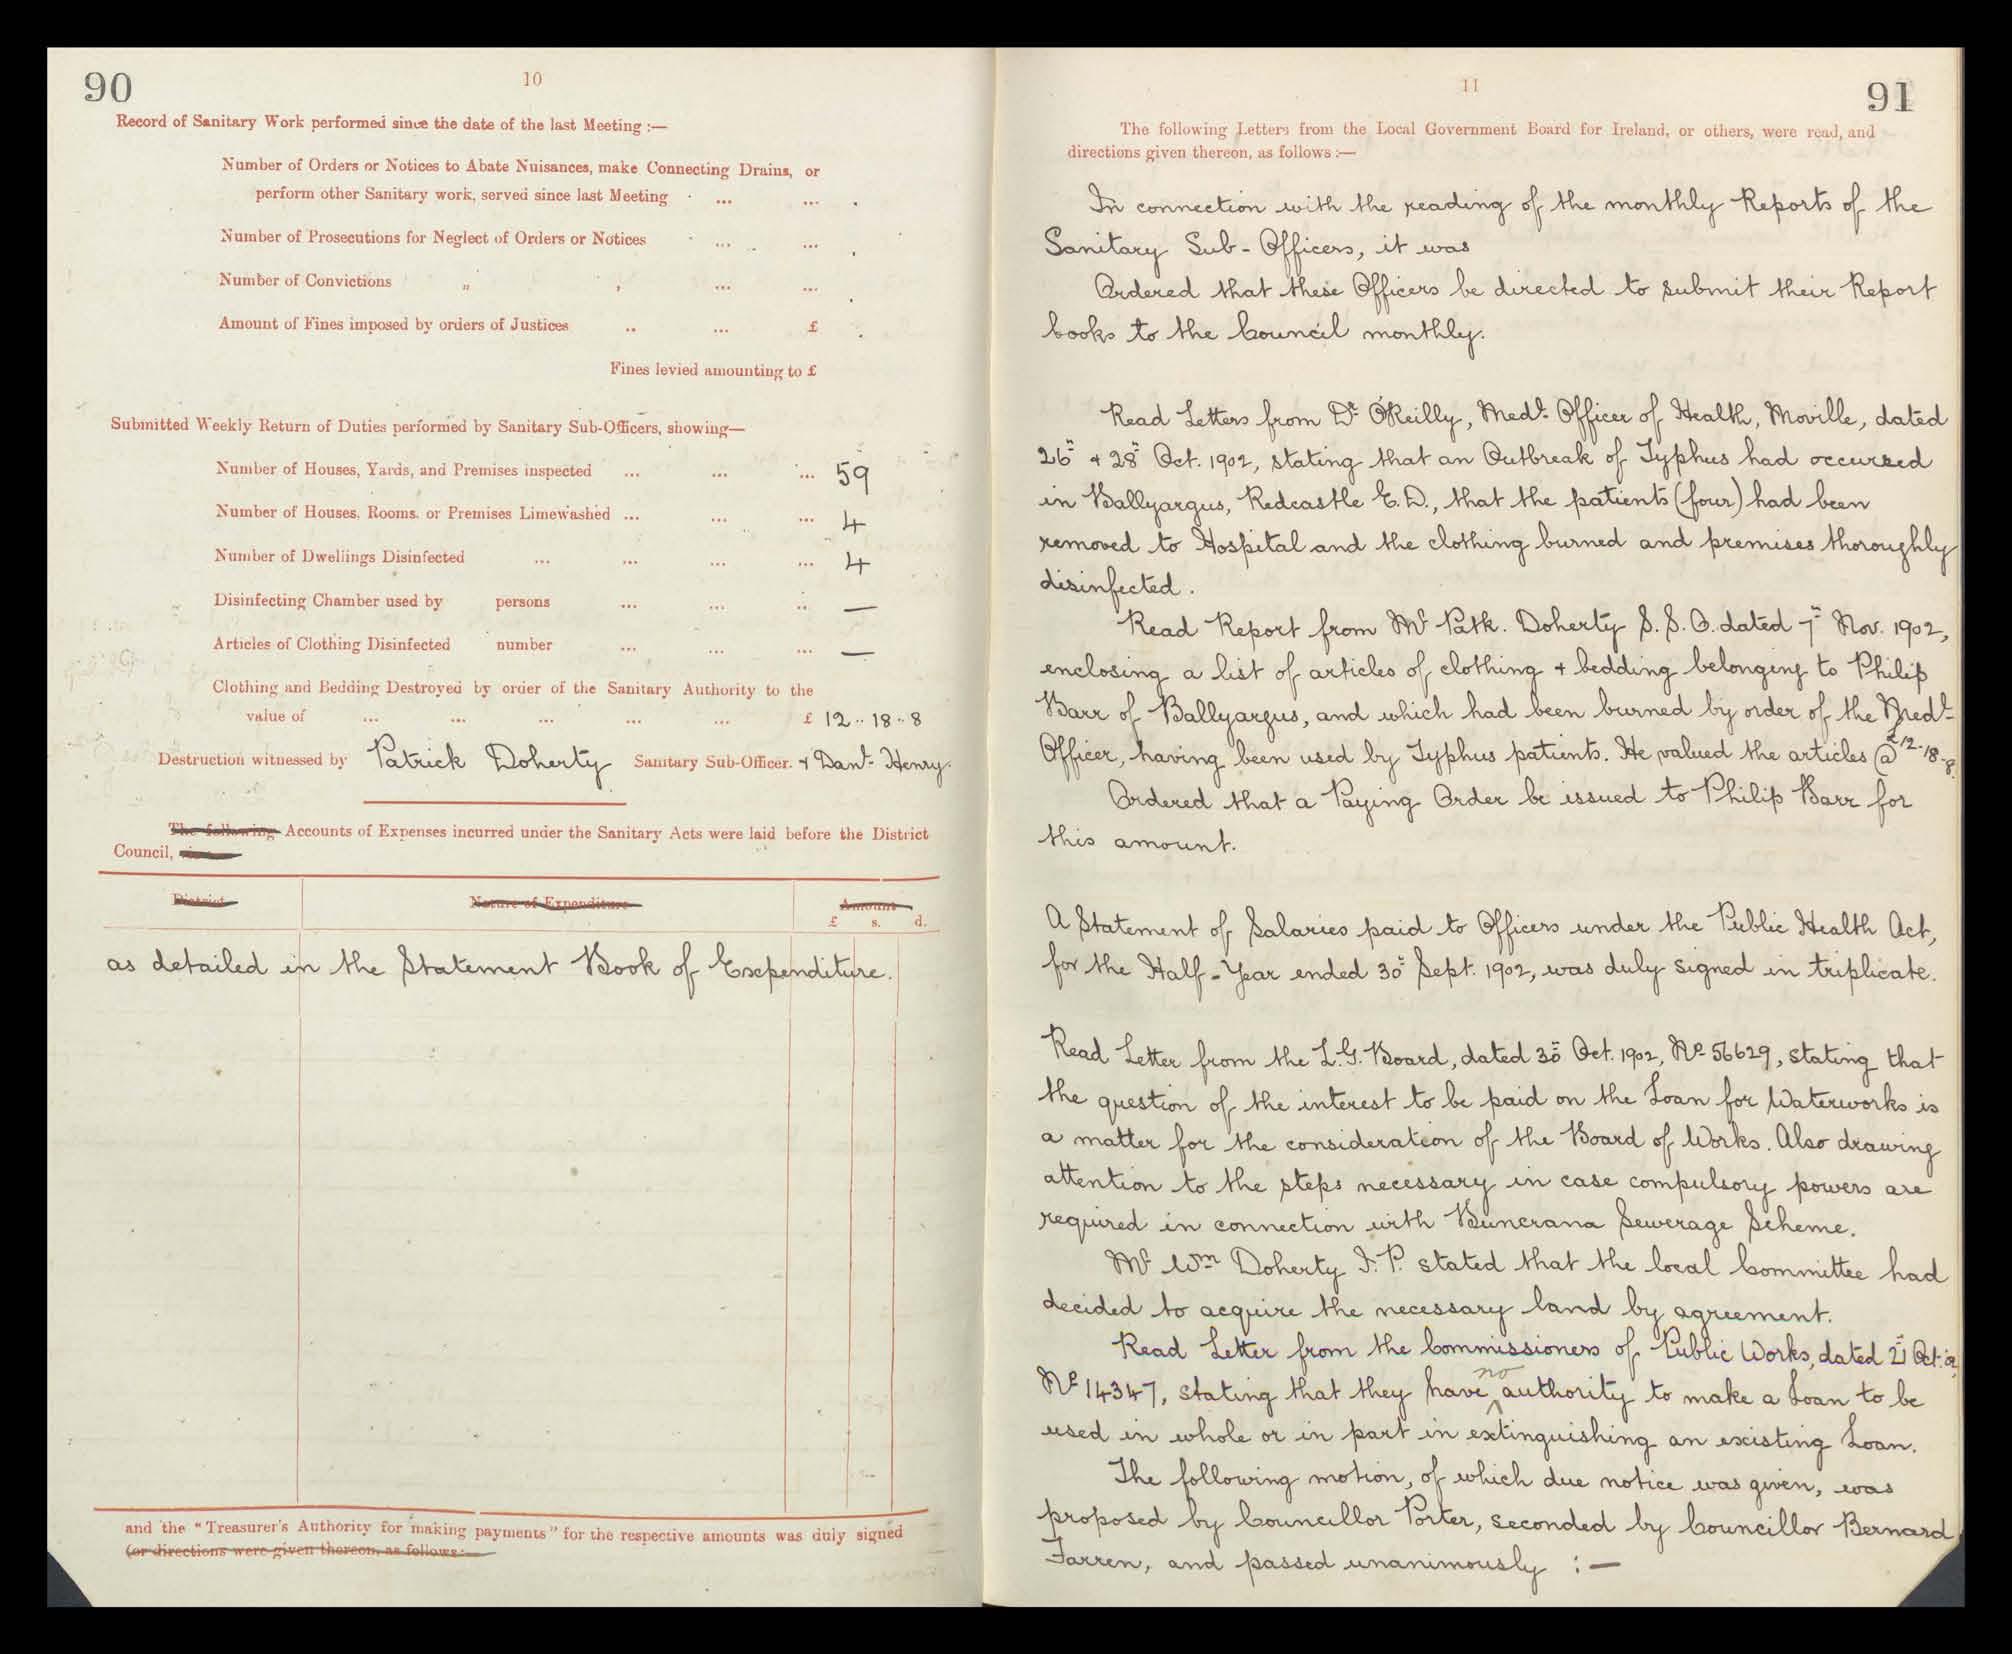 90
10
Record of Sanitary Work performed since the date of the last Meeting :—
Number of Orders or Notices to Abate Nuisances, make Connecting Drains, or
perform other Sanitary work, served since last Meeting ... ...
Number of Prosecutions for Neglect of Orders or Notices ... ...
Number of Convictions „ , ... ...
Amount of Fines imposed by orders of Justices .. ... £
Fines levied amounting to £
Submitted Weekly Return of Duties performed by Sanitary Sub-Officers, showing—
Number of Houses, Yards, and Premises inspected ... ... ... 59
Number of Houses, Rooms, or Premises Limewashed ... ... ... 4
Number of Dwellings Disinfected ... ... ... ... 4
Disinfecting Chamber used by persons ... ... .. —
Articles of Clothing Disinfected number ... ... ... —
Clothing and Bedding Destroyed by order of the Sanitary Authority to the
value of ... ... ... ... ... £ 12 .. 18 .. 8
Destruction witnessed by Patrick Doherty Sanitary Sub-Officer. + Danl. Henry.
The following Accounts of Expenses incurred under the Sanitary Acts were laid before the District
Council,
District Nature of Expenditure Amount
£ s. d.
as detailed in the Statement Book of Expenditure.
and the "Treasurer's Authority for making payments" for the respective amounts was duly signed
(or directions were given thereon, as follows:—
11
91
The following Letters from the Local Government Board for Ireland, or others, were read, and
directions given thereon, as follows :—
In connection with the reading of the monthly Reports of the
Sanitary Sub-Officers, it was
Ordered that these Officers be directed to submit their Report
books to the Council monthly.
Read Letters from Dr. O'Reilly, Medl. Officer of Health, Moville, dated
26" + 28" Oct. 1902, stating that an Outbreak of Typhus had occurred
in Ballyargus, Redcastle E.D., that the patients (four) had been
removed to Hospital and the clothing burned and premises thoroughly
disinfected.
Read Report from Mr. Patk. Doherty S.S.O. dated 7" Nov. 1902,
enclosing a list of articles of clothing + bedding belonging to Philip
Barr of Ballyargus, and which had been burned by order of the Medl.
Officer, having been used by Typhus patients. He valued the articles @ £12-18-8.
Ordered that a Paying Order be issued to Philip Barr for
this amount.
A Statement of Salaries paid to Officers under the Public Health Act,
for the Half-Year ended 30" Sept. 1902, was duly signed in triplicate.
Read Letter from the L.G. Board, dated 30" Oct. 1902, No. 56629, stating that
the question of the interest to be paid on the Loan for Waterworks is
a matter for the consideration of the Board of Works. Also drawing
attention to the steps necessary in case compulsory powers are
required in connection with Buncrana Sewerage Scheme.
Mr. Wm. Doherty J.P. stated that the local Committee had
decided to acquire the necessary land by agreement.
Read Letter from the Commissioners of Public Works, dated 21" Oct. '02,
No. 14347, stating that they have no authority to make a Loan to be
used in whole or in part in extinguishing an existing Loan.
The following motion, of which due notice was given, was
proposed by Councillor Porter, seconded by Councillor Bernard
Farren, and passed unanimously :—